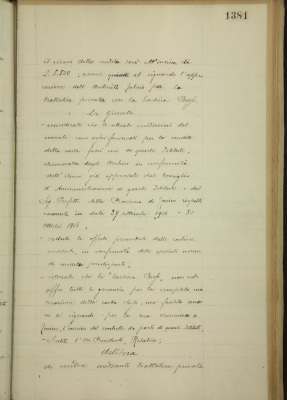 1381
il ricavo della vendita sarà all'incirca di
L. 5.500, nonché quando si riguardi l'appro
vazione dell'Autorità tutoria per la
trattativa privata con la Cartiera Bosj.
La Giunta
- considerato che le attuali condizioni del
mercato sono per la vendita
della carta fuori uso di questo Istituto,
dagli Archivi in conformità
dell'elenco già approvato dal Consiglio
d'Amministrazione di questo Istituto e dal
Sig. Prefetto della Provincia di rispetti
vamente in data 29 settembre 1915 e 21
Ottobre 1915;
- vedute le offerte presentate dalle cartiere
in conformità delle norme
di vendita predisposte;
- ritenuto che la Cartiera Bosj. non solo
offre tutte le garanzie per la completa ma
cerazione della carta stessa, ma facilita anco
ra a riguardo per la sua vicinanza a
l'esercizio del controllo da parte di questo Istituto;
- Sentito l'On. Presidente, Relatore;
delibera
di vendere mediante trattativa privata